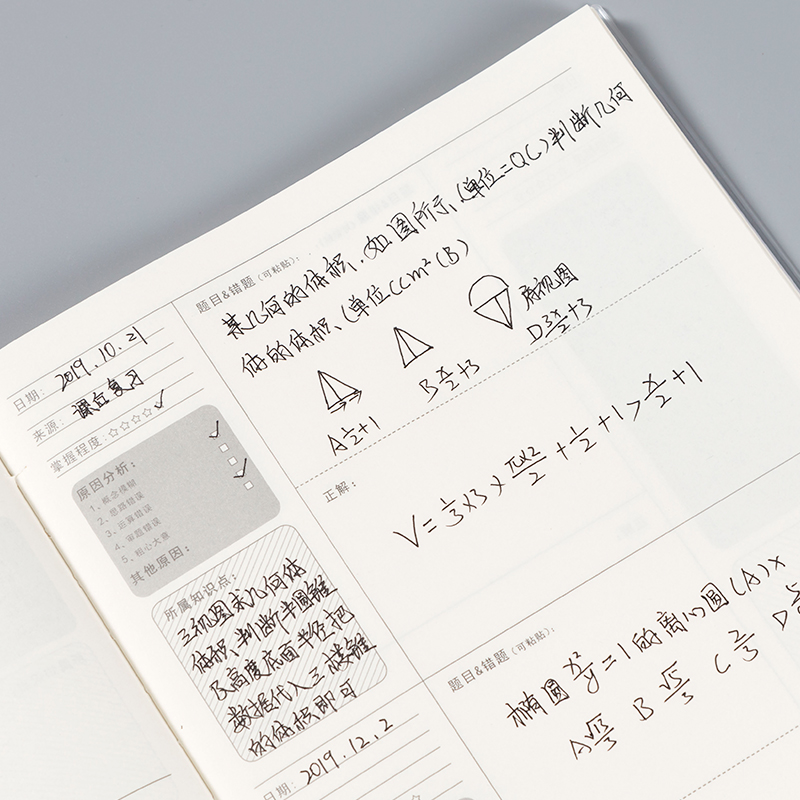 题目&错题(可粘贴):
某几何的体积.如图所示,(单位=QC)判断几何
体的体积、(单位CCm²(B)
俯视图
A½+1
B π/2+3
D 3π/2+3
日期: 2019.10.21
来源: 课后复习
掌握程度:☆☆☆☆✓
原因分析:
1、概念模糊
2、思路错误
3、运算错误
4、审题错误
5、粗心大意
其他原因:
正解:
V=⅓×3×π×2/2+½+1>π/2+1
所属知识点:
三视图求几何体
体积.判断半圆锥
及高度底面半径把
数据代入三棱锥
的体积即可
题目&错题(可粘贴):
椭圆x²/y=1的离心圆(A)x
A√13/3 B√5/3 C⅔ D
日期: 2019.12.2